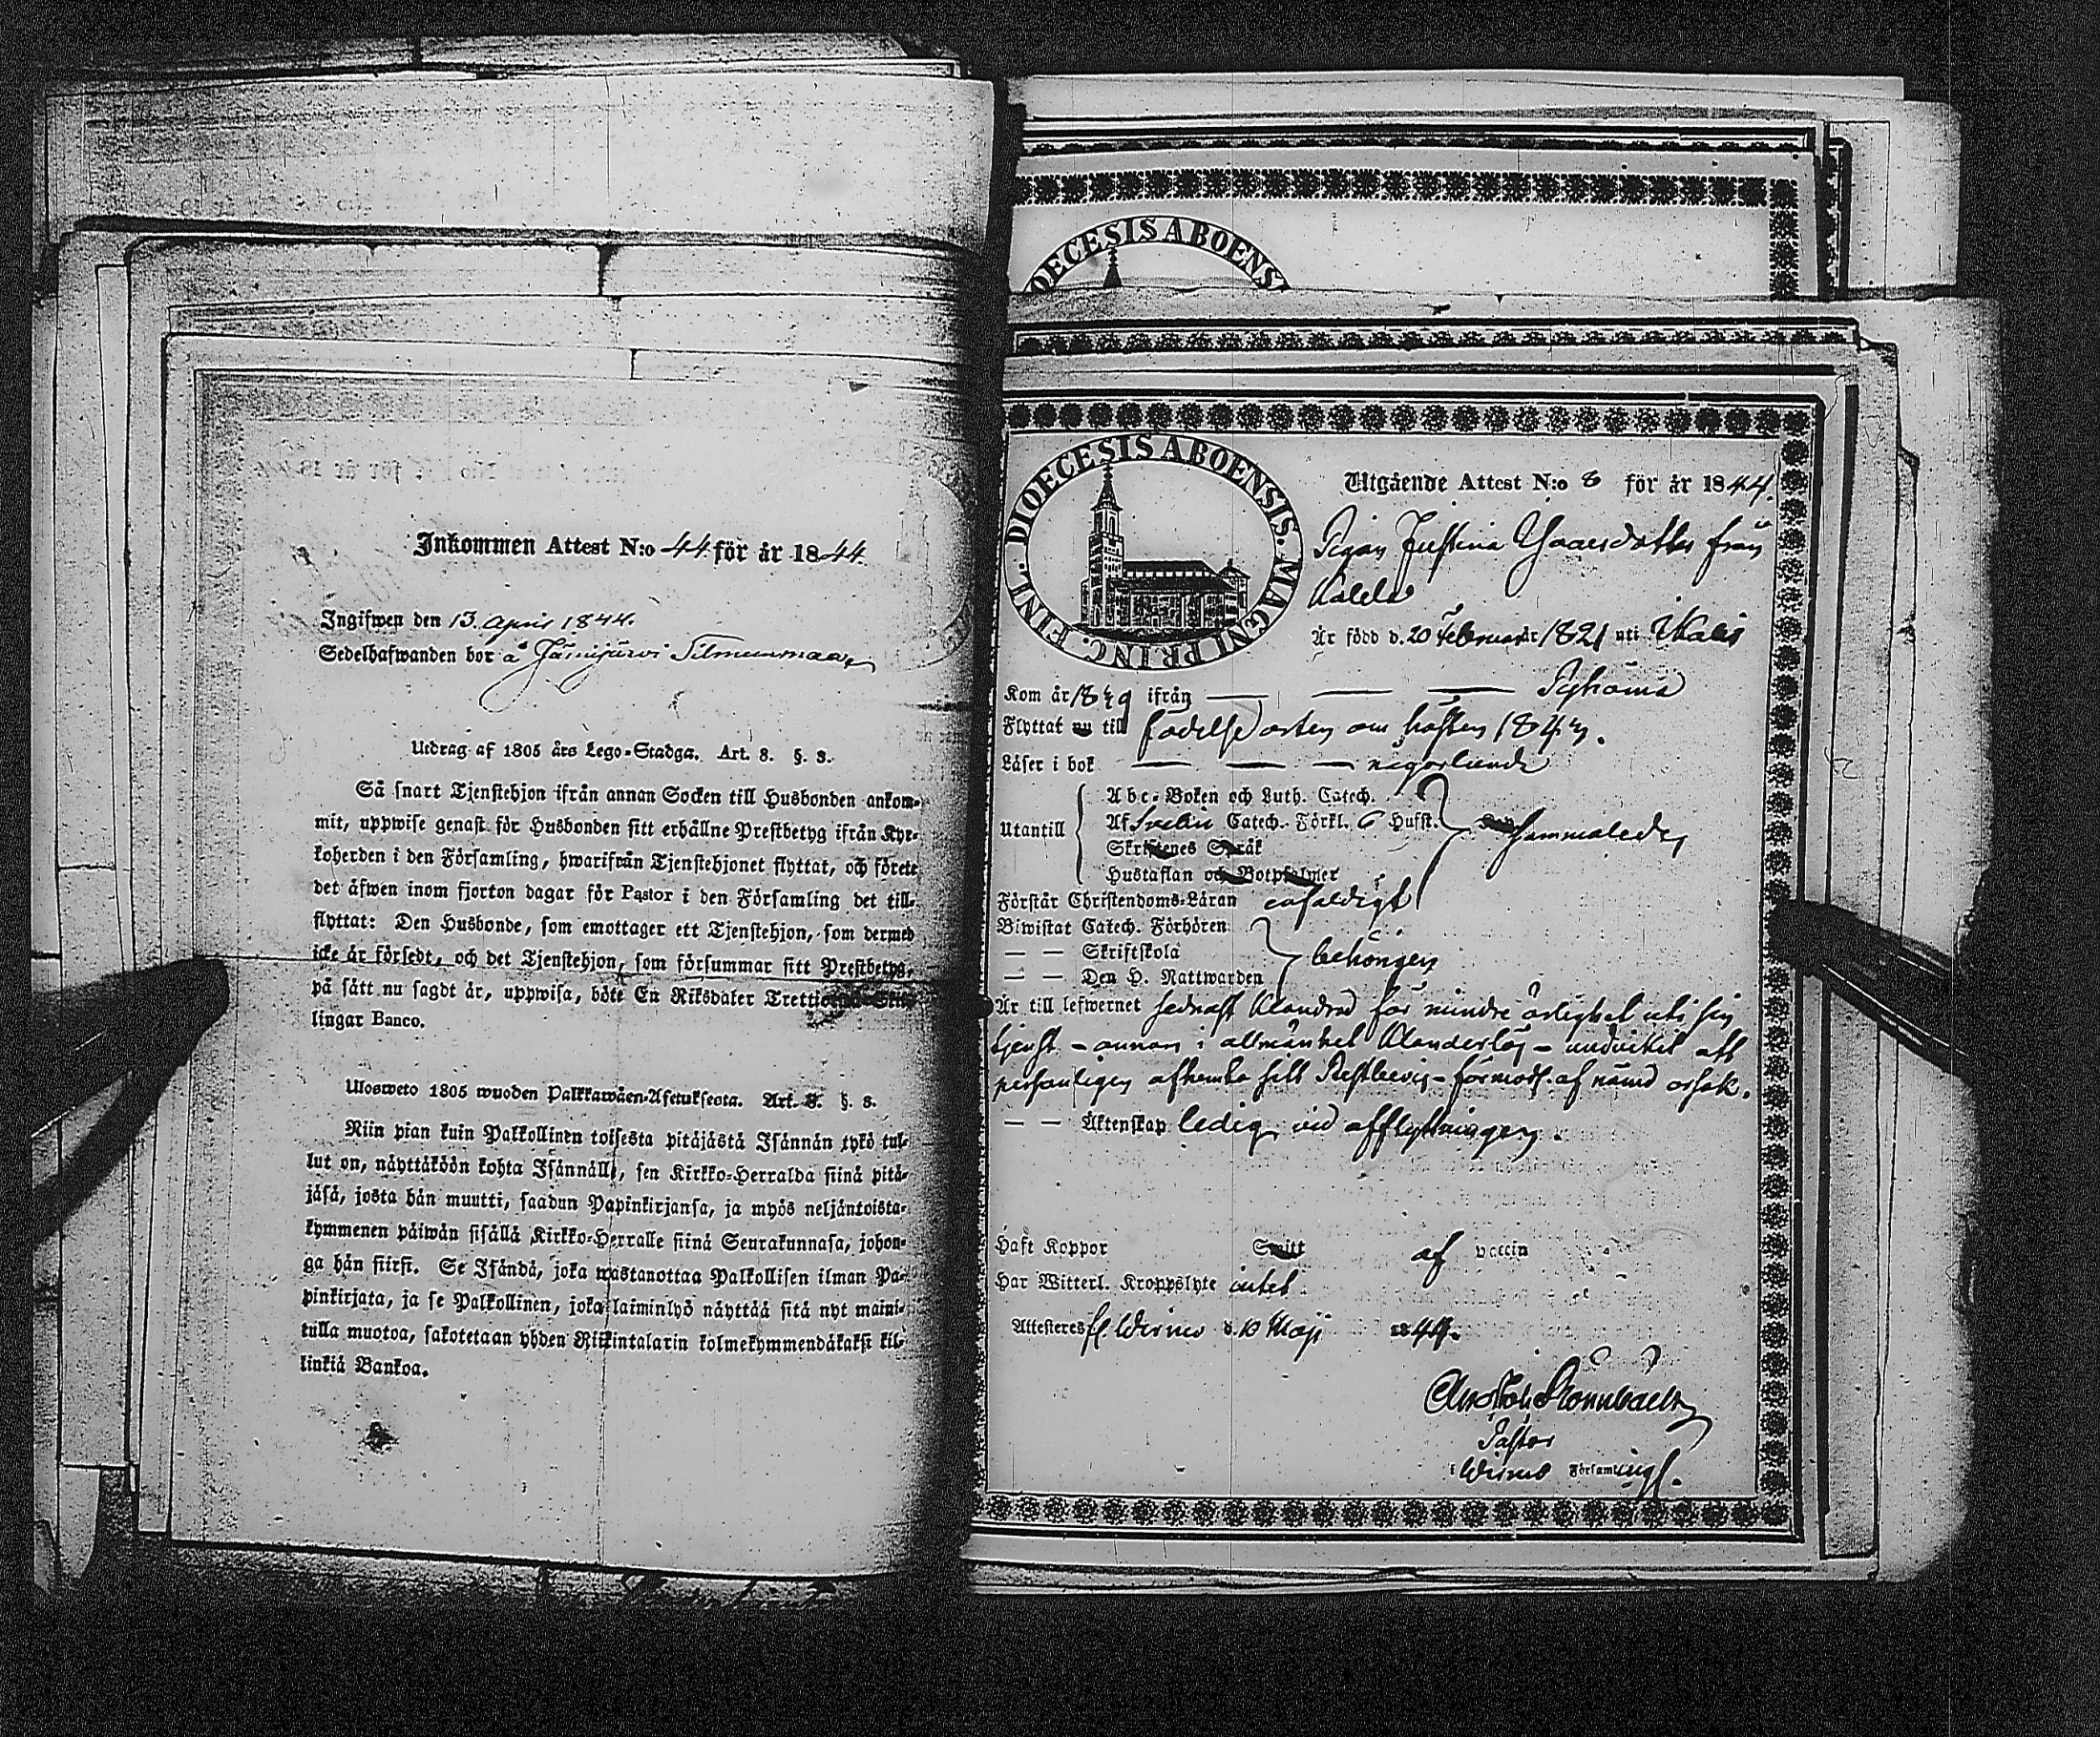 Inkommen Attest N:o 44 för år 1844.
Ingifwen den 13. april 1844.
Sedelhafwanden bor å
Utdrag af 1805 års Lego-Stadga. Art. 8. §. 3.
Så snart Tjenstehjon ifrån annan Socken till Husbonden ankom-
mit, uppwise genast för Husbonden sitt erhållne Prestbetyg ifrån Kyr-
koherden i den Församling, hwarifrån Tjenstehjonet flyttat, och förete
det äfwen inom fjorton dagar för Pastor i den Församling det till-
flyttat: Den Husbonde, som emottager ett Tjenstehjon, som dermed
icke är försedt, och det Tjenstehjon, som försummar sitt Prestbetyg,
på sätt nu sagdt är, uppwisa, böte En Riksdaler
lingar Banco.
Ulosweto 1805 wuoden Palkkawäen-Asetuksesta. Art. 8. §. 3.
Niin pian kuin Palkollinen toisesta pitäjästä Isännän tykö tul-
lut on, näyttäköön kohta Isännälle, sen Kirkko-Herralda siinä pitä-
jäsä, josta hän muutti, saadun Papinkirjansa, ja myös neljäntoista-
kymmenen päiwän sisällä Kirkko-Herralle siinä Seurakunnasa, johon-
ga hän siirsi. Se Isändä, joka wastanottaa Palkollisen ilman Pa-
pinkirjata, ja se Palkollinen, joka laiminlyö näyttää sitä nyt maini-
tulla muotoa, sakotetaan yhden Riikintalarin kolmekymmendäkaksi kil-
linkiä Bankoa.
DIOECESIS ABOENS
DIOECESIS ABOENSIS. MAGNI PRINC. FINL.
Utgående Attest N:o 8 för år 1844.
Pigan Justina från
Är född d. 20 Februari år 1821 uti
Kom år ifrån — — —
Flyttat nu till födelseorten om hösten 1843.
Läser i bok — — — någorlunda
Utantill
Abc-Boken och Luth. Catech.
Af Svebilii Catech. Förkl. 6 Hufst.
Skriftenes Språk
Hustaflan och Botpsalmer
sammaledes
Förstår Christendoms-Läran enfaldigt
Biwistat Catech. Förhören
— — Skriftskola
— — Den H. Nattwarden
behörigen
Är till lefwernet sednast klandrad för mindre ärlighet uti sin
tjenst – annars i allmänhet klanderlös – undvikit att
personligen afhemta sitt Prestbevis – förmodl. af nämd orsak.
— — Äktenskap ledig vid afflyttningen.
Haft Koppor Smitt af vaccin
Har Witterl. Kroppslyte intet
Attesteres fr. Wirmo d. 10 Maji 1844.
Pastor
i Wirmo Församlingl.